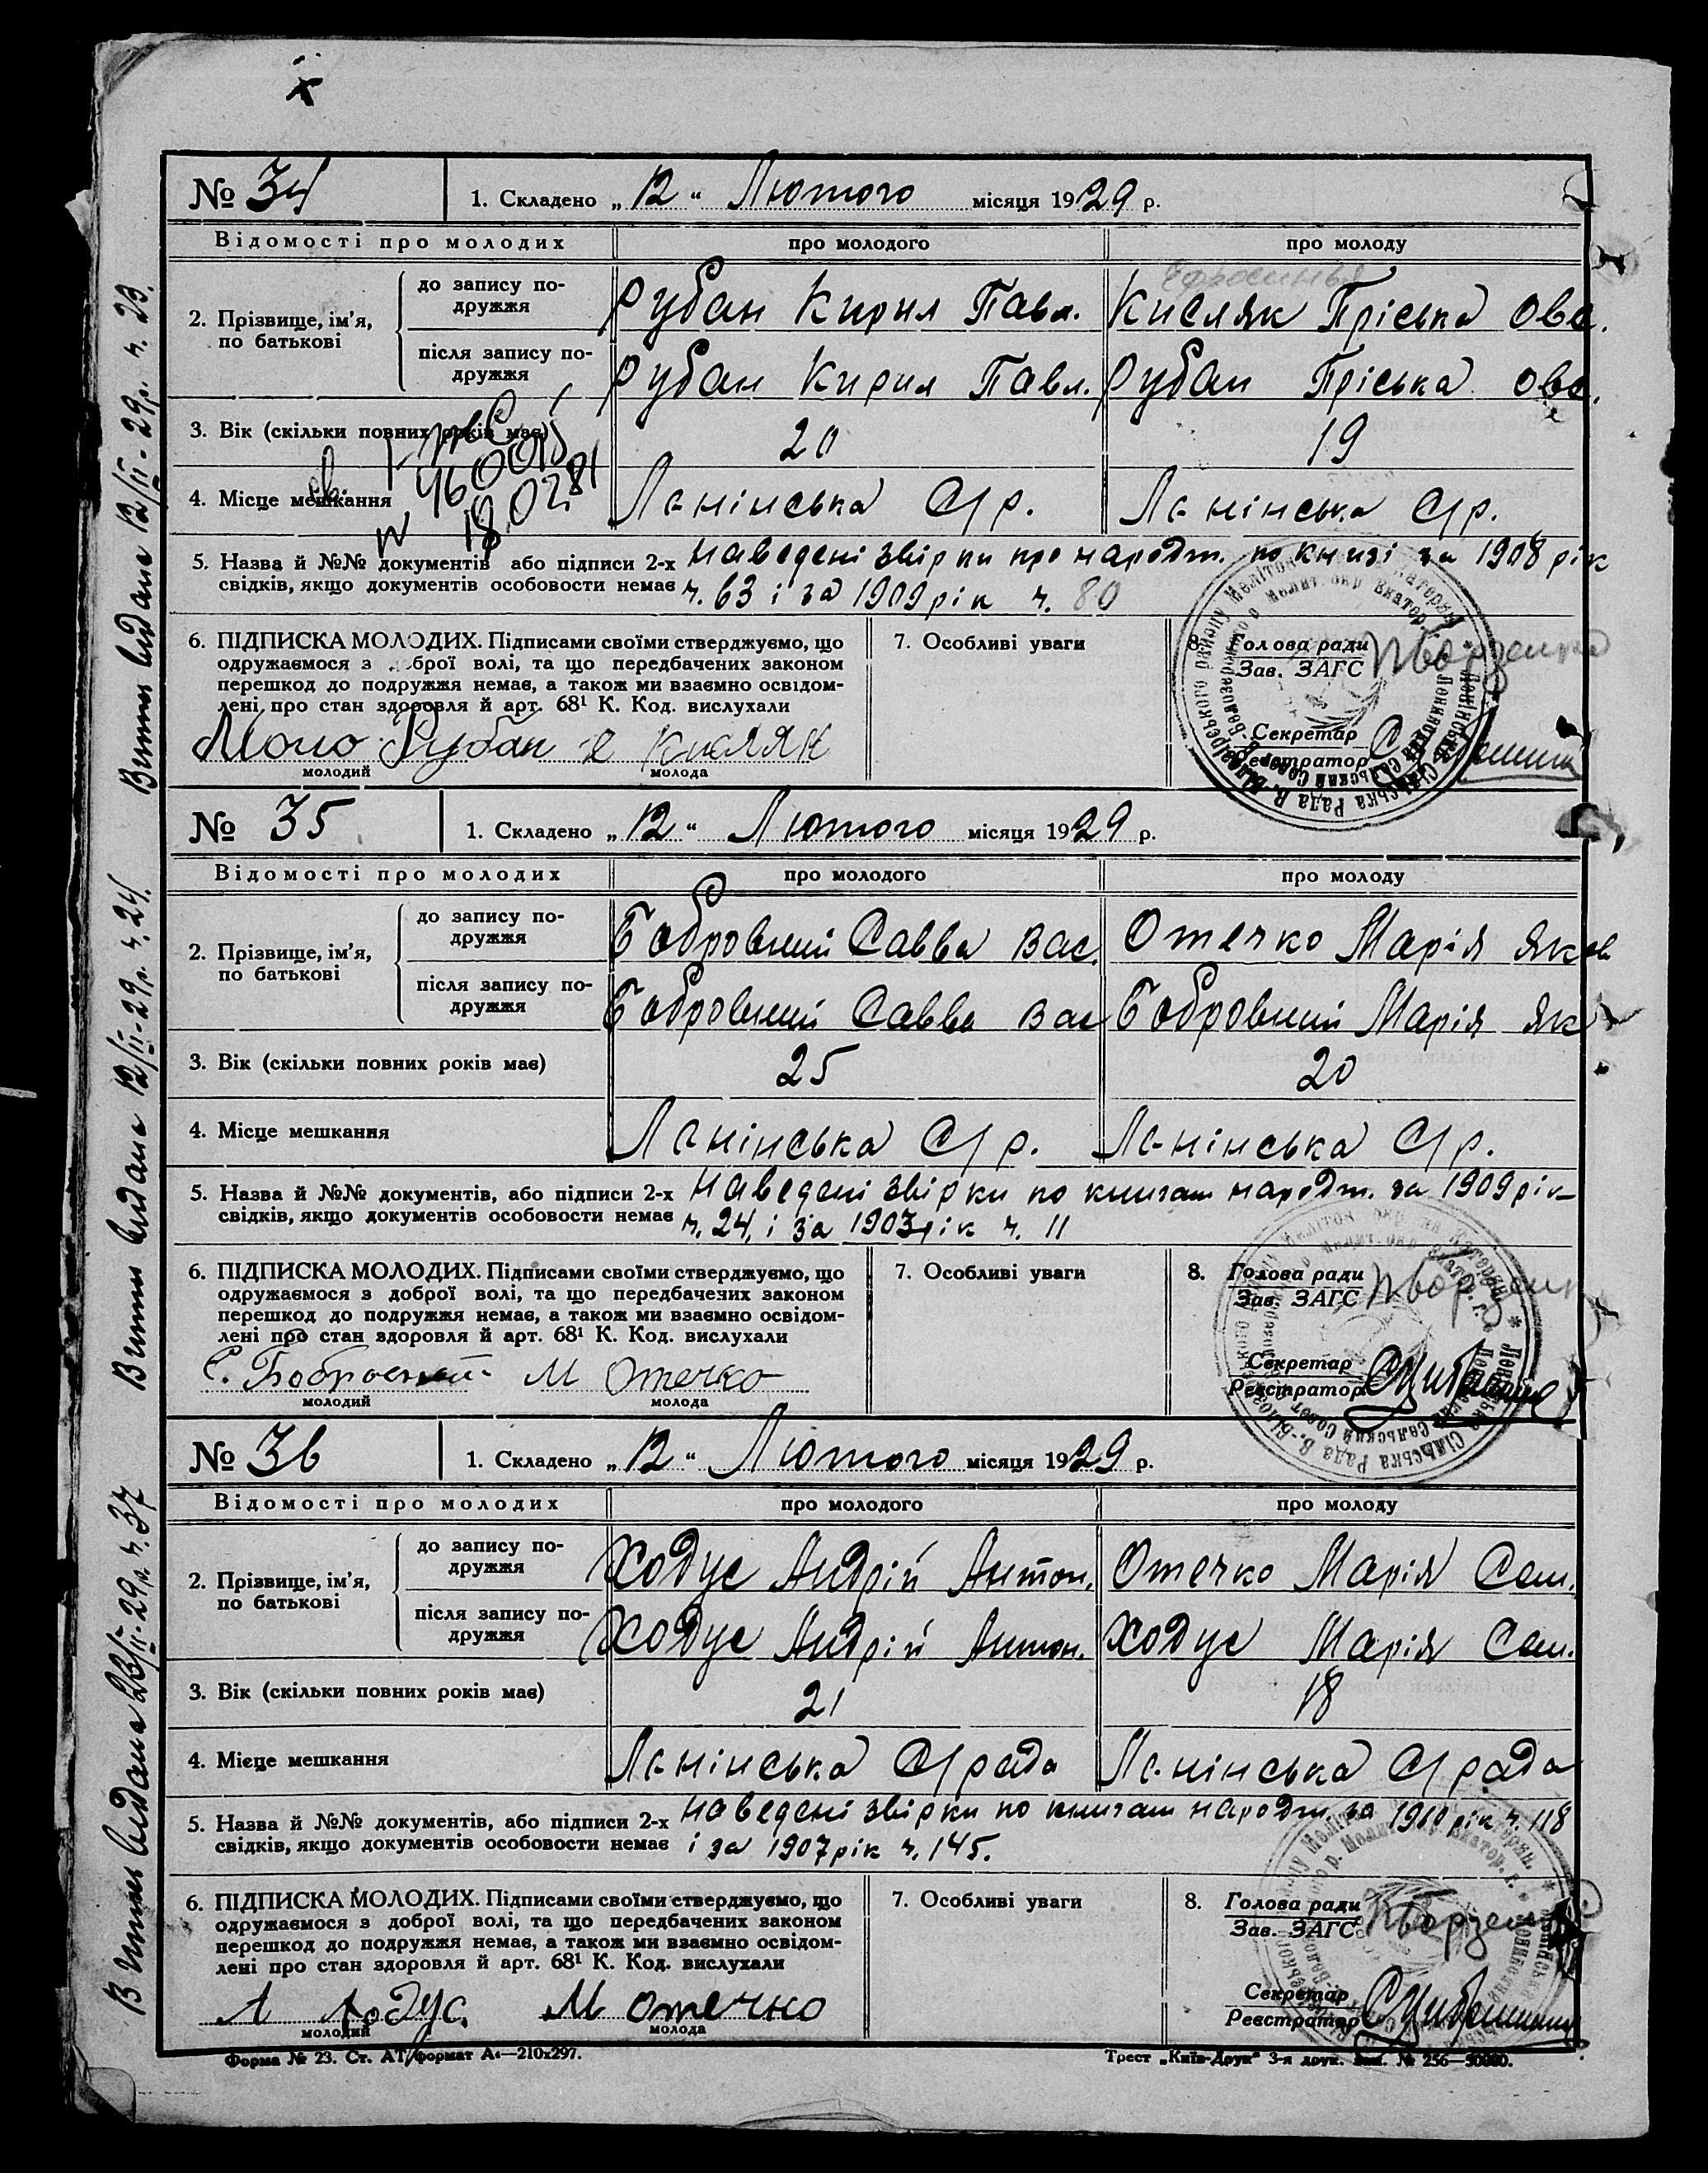 № 34 1. Складено „12“ Лютого місяця 1929 р.
Відомості про молодих про молодого про молоду
2. Прізвище, ім'я, по батькові
до запису подружжя Рубан Кирил Павл. Кисляк Пріська Овс.
після запису подружжя Рубан Кирил Павл. Рубан Пріська Овс.
3. Вік (скільки повних років має) 20 19
4. Місце мешкання Ленінська С/р. Ленінська С/р.
5. Назва й №№ документів або підписи 2-х наведені звірки про народж. по книзі за 1908 рік
свідків, якщо документів особовости немає ч. 63 і за 1909 рік ч. 80
6. ПІДПИСКА МОЛОДИХ. Підписами своїми стверджуємо, що 7. Особливі уваги 8. Голова ради
одружаємося з доброї волі, та що передбачених законом Зав. ЗАГС
перешкод до подружжя немає, а також ми взаємно освідом-
лені про стан здоровля й арт. 68¹ К. Код. вислухали
Рубан Кисляк Секретар
молодий молода Реєстратор
№ 35 1. Складено „12“ Лютого місяця 1929 р.
Відомості про молодих про молодого про молоду
2. Прізвище, ім'я, по батькові
до запису подружжя Бобровний Савва Вас. Отечко Марія Яков
після запису подружжя Бобровний Савва Вас Бобровний Марія Як
3. Вік (скільки повних років має) 25 20
4. Місце мешкання Ленінська С/р. Ленінська С/р.
5. Назва й №№ документів, або підписи 2-х наведені звірки по книгам народж. за 1909 рік
свідків, якщо документів особовости немає ч. 24, і за 1903 рік ч. 11
6. ПІДПИСКА МОЛОДИХ. Підписами своїми стверджуємо, що 7. Особливі уваги 8. Голова ради
одружаємося з доброї волі, та що передбачених законом Зав. ЗАГС
перешкод до подружжя немає, а також ми взаємно освідом-
лені про стан здоровля й арт. 68¹ К. Код. вислухали Секретар
С. М Отечко Реєстратор
молодий молода
№ 36 1. Складено „12“ Лютого місяця 1929 р.
Відомості про молодих про молодого про молоду
2. Прізвище, ім'я, по батькові
до запису подружжя Ходус Андрій Антон. Отечко Марія Сем.
після запису подружжя Ходус Андрій Антон. Ходус Марія Сем.
3. Вік (скільки повних років має) 21 18
4. Місце мешкання Ленінська С/рада Ленінська С/рада
5. Назва й №№ документів, або підписи 2-х наведені звірки по книгам народж. за 1910 рік ч. 118
свідків, якщо документів особовости немає і за 1907 рік ч. 145.
6. ПІДПИСКА МОЛОДИХ. Підписами своїми стверджуємо, що 7. Особливі уваги 8. Голова ради
одружаємося з доброї волі, та що передбачених законом Зав. ЗАГС
перешкод до подружжя немає, а також ми взаємно освідом-
лені про стан здоровля й арт. 68¹ К. Код. вислухали Секретар
А Ходус. М Отечко Реєстратор
молодий молода
Форма № 23. Ст. АТ, формат А4—210х297. Трест „Київ-Друк“ 3-я друк. Зам. № 256—50000.
Випис видана 12/II-29р. ч. 23.
Випис видана 12/II-29р. ч. 24.
Випис видана 23/II-29р. ч. 37